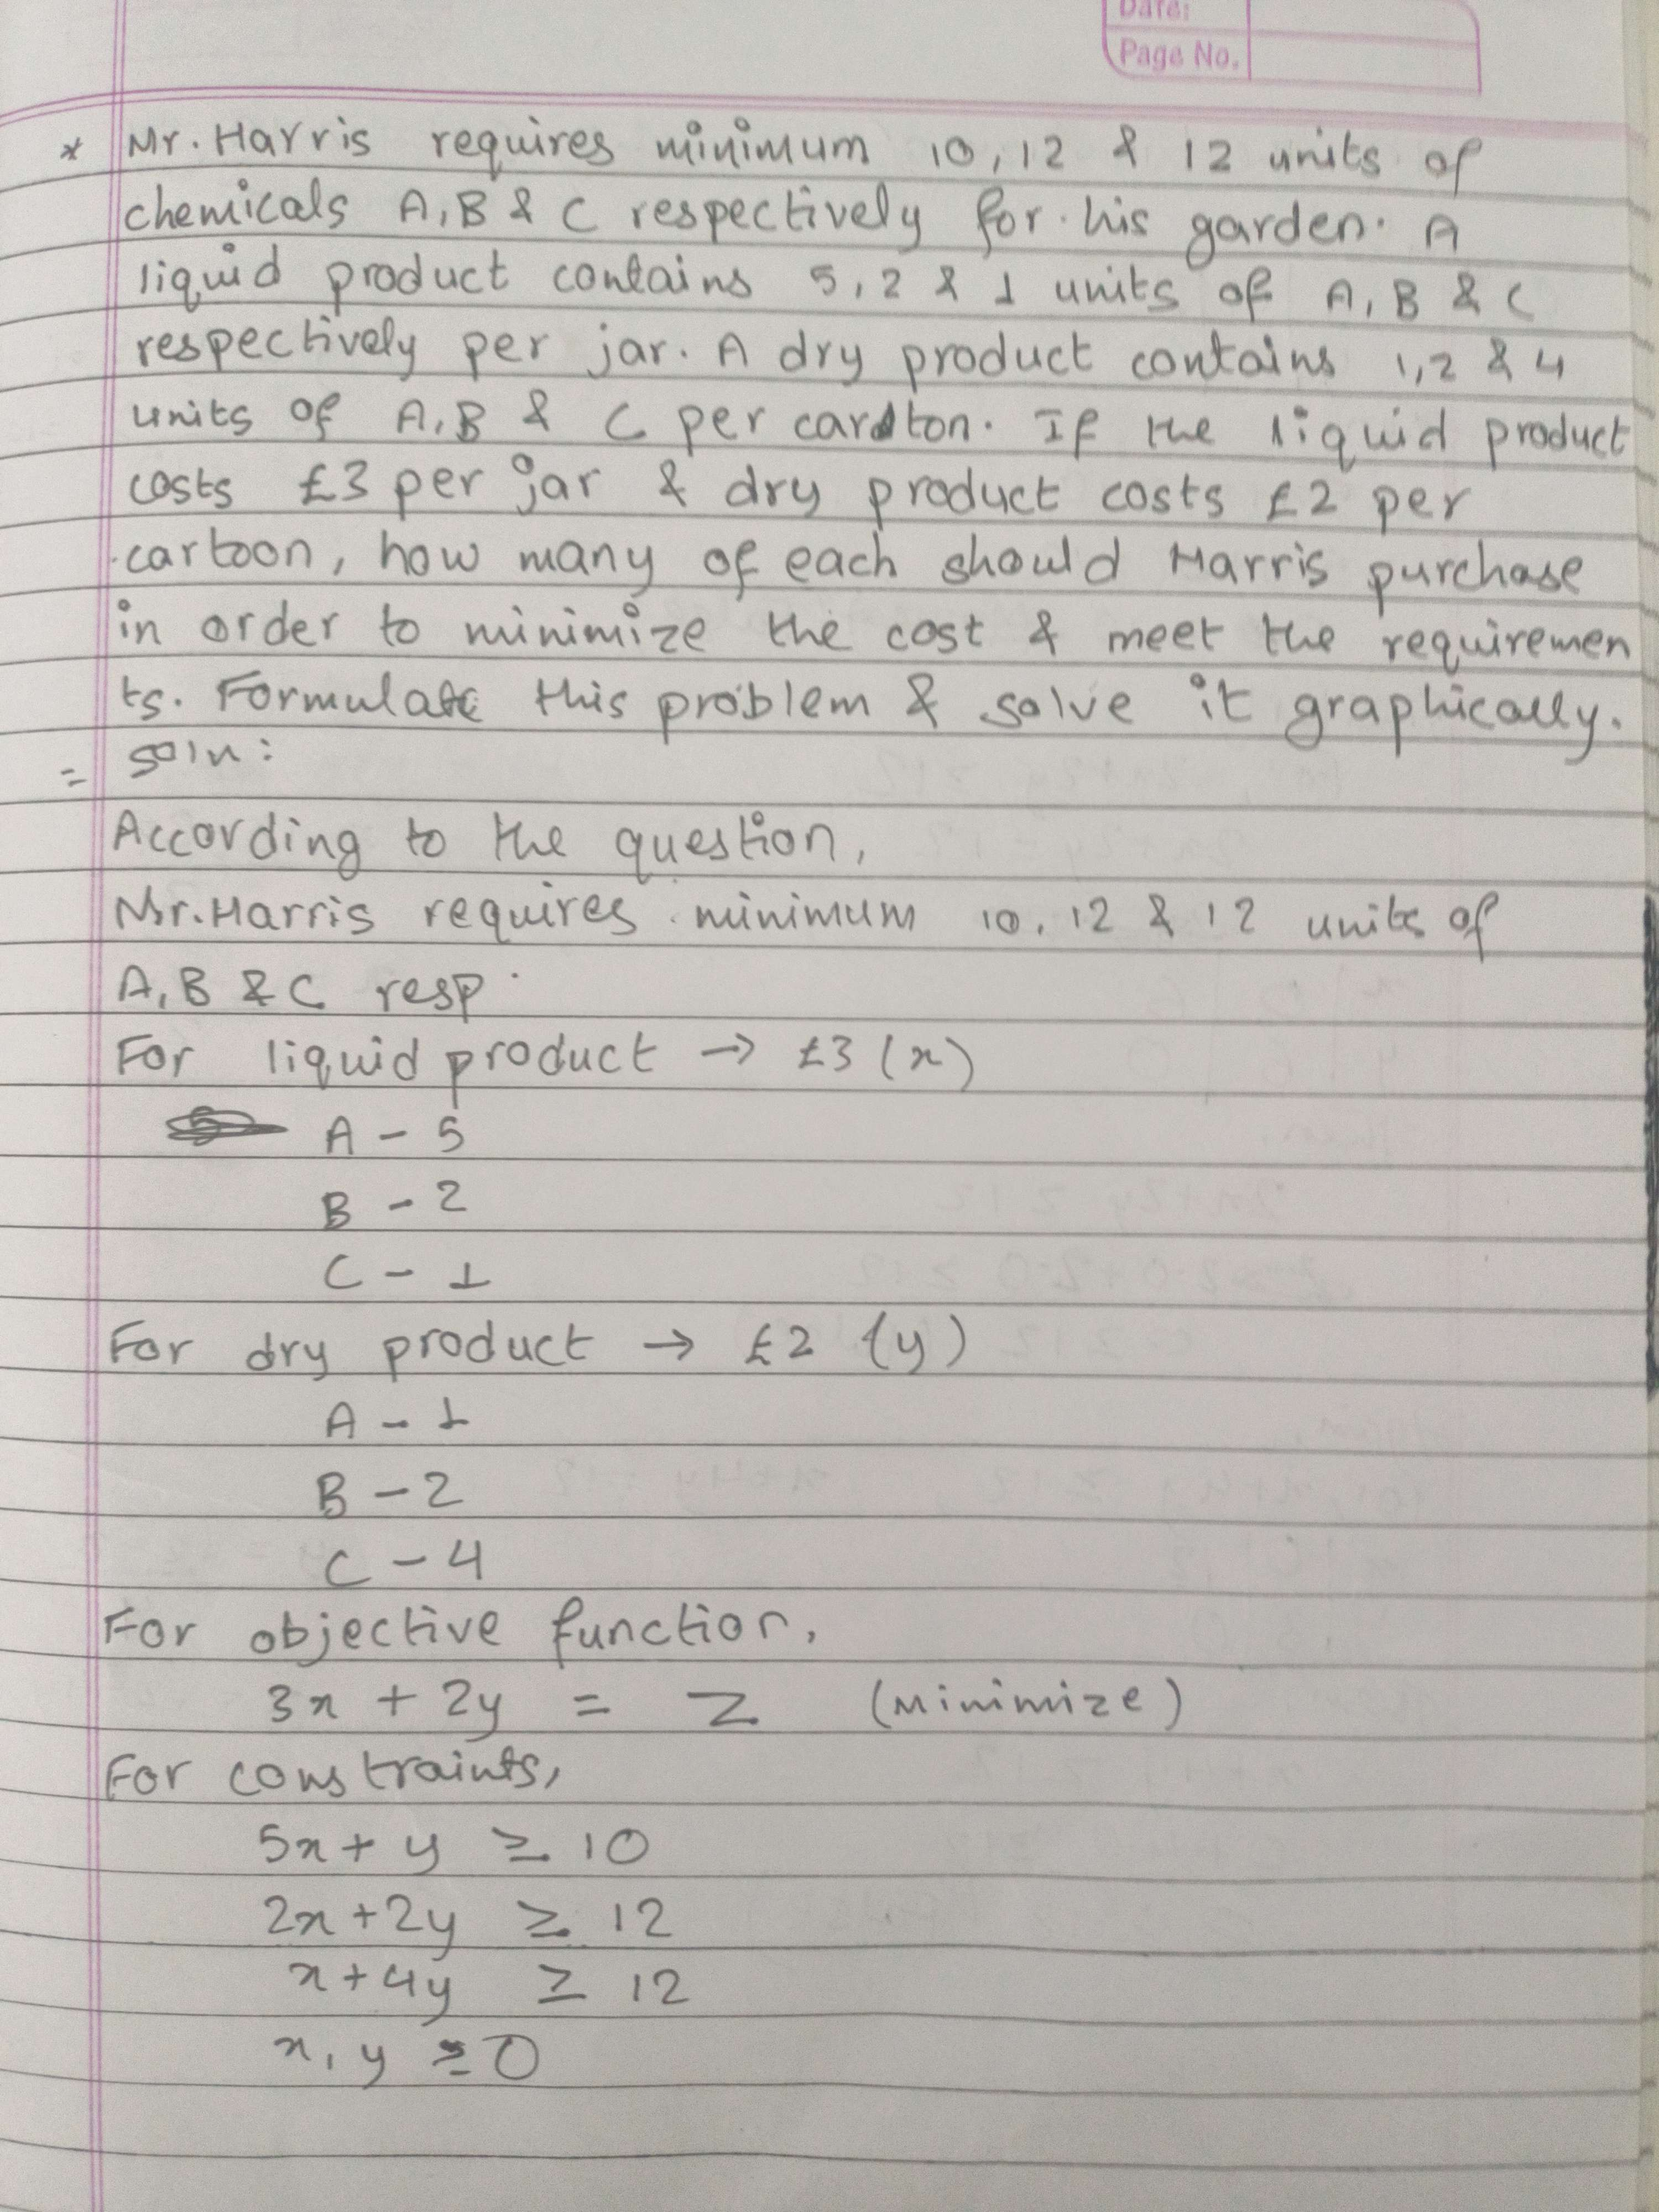 Date:
Page No.
* Mr. Harris requires minimum 10, 12 & 12 units of
chemicals A, B & C respectively for his garden. A
liquid product contains 5, 2 & 1 units of A, B & C
respectively per jar. A dry product contains 1, 2 & 4
units of A, B & C per cardton. If the liquid product
costs £3 per jar & dry product costs £2 per
cartoon, how many of each should Harris purchase
in order to minimize the cost & meet the requiremen
ts. Formulate this problem & solve it graphically.
= soln:
According to the question,
Mr. Harris requires minimum 10, 12 & 12 units of
A, B & C resp.
For liquid product → £3 (x)
A - 5
B - 2
C - 1
For dry product → £2 (y)
A - 1
B - 2
C - 4
For objective function,
3x + 2y = Z (Minimize)
For constraints,
5x + y ≥ 10
2x + 2y ≥ 12
x + 4y ≥ 12
x, y ≥ 0